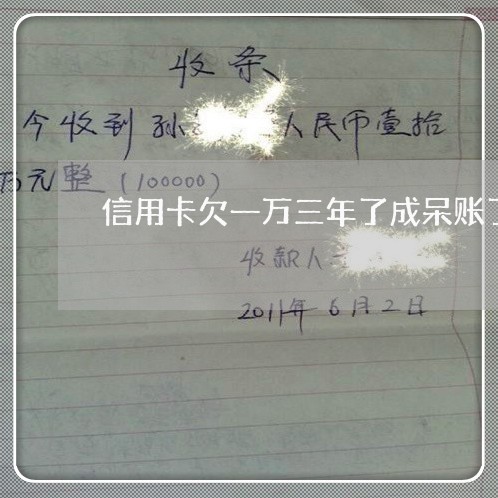 收条
今收到孙 人民币壹拾
万元整（100000）
信用卡欠一万三年了成呆账了
收款人
2011年6月2日